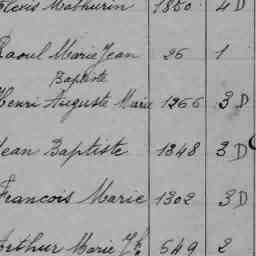 Alexis Mathurin 1850 4 D
Raoul Marie Jean 26 1
Baptiste
Henri Auguste Marie 1266 3 D
Jean Baptiste 1348 3 D
Francois Marie 1302 3 D
Arthur Marie 549 2